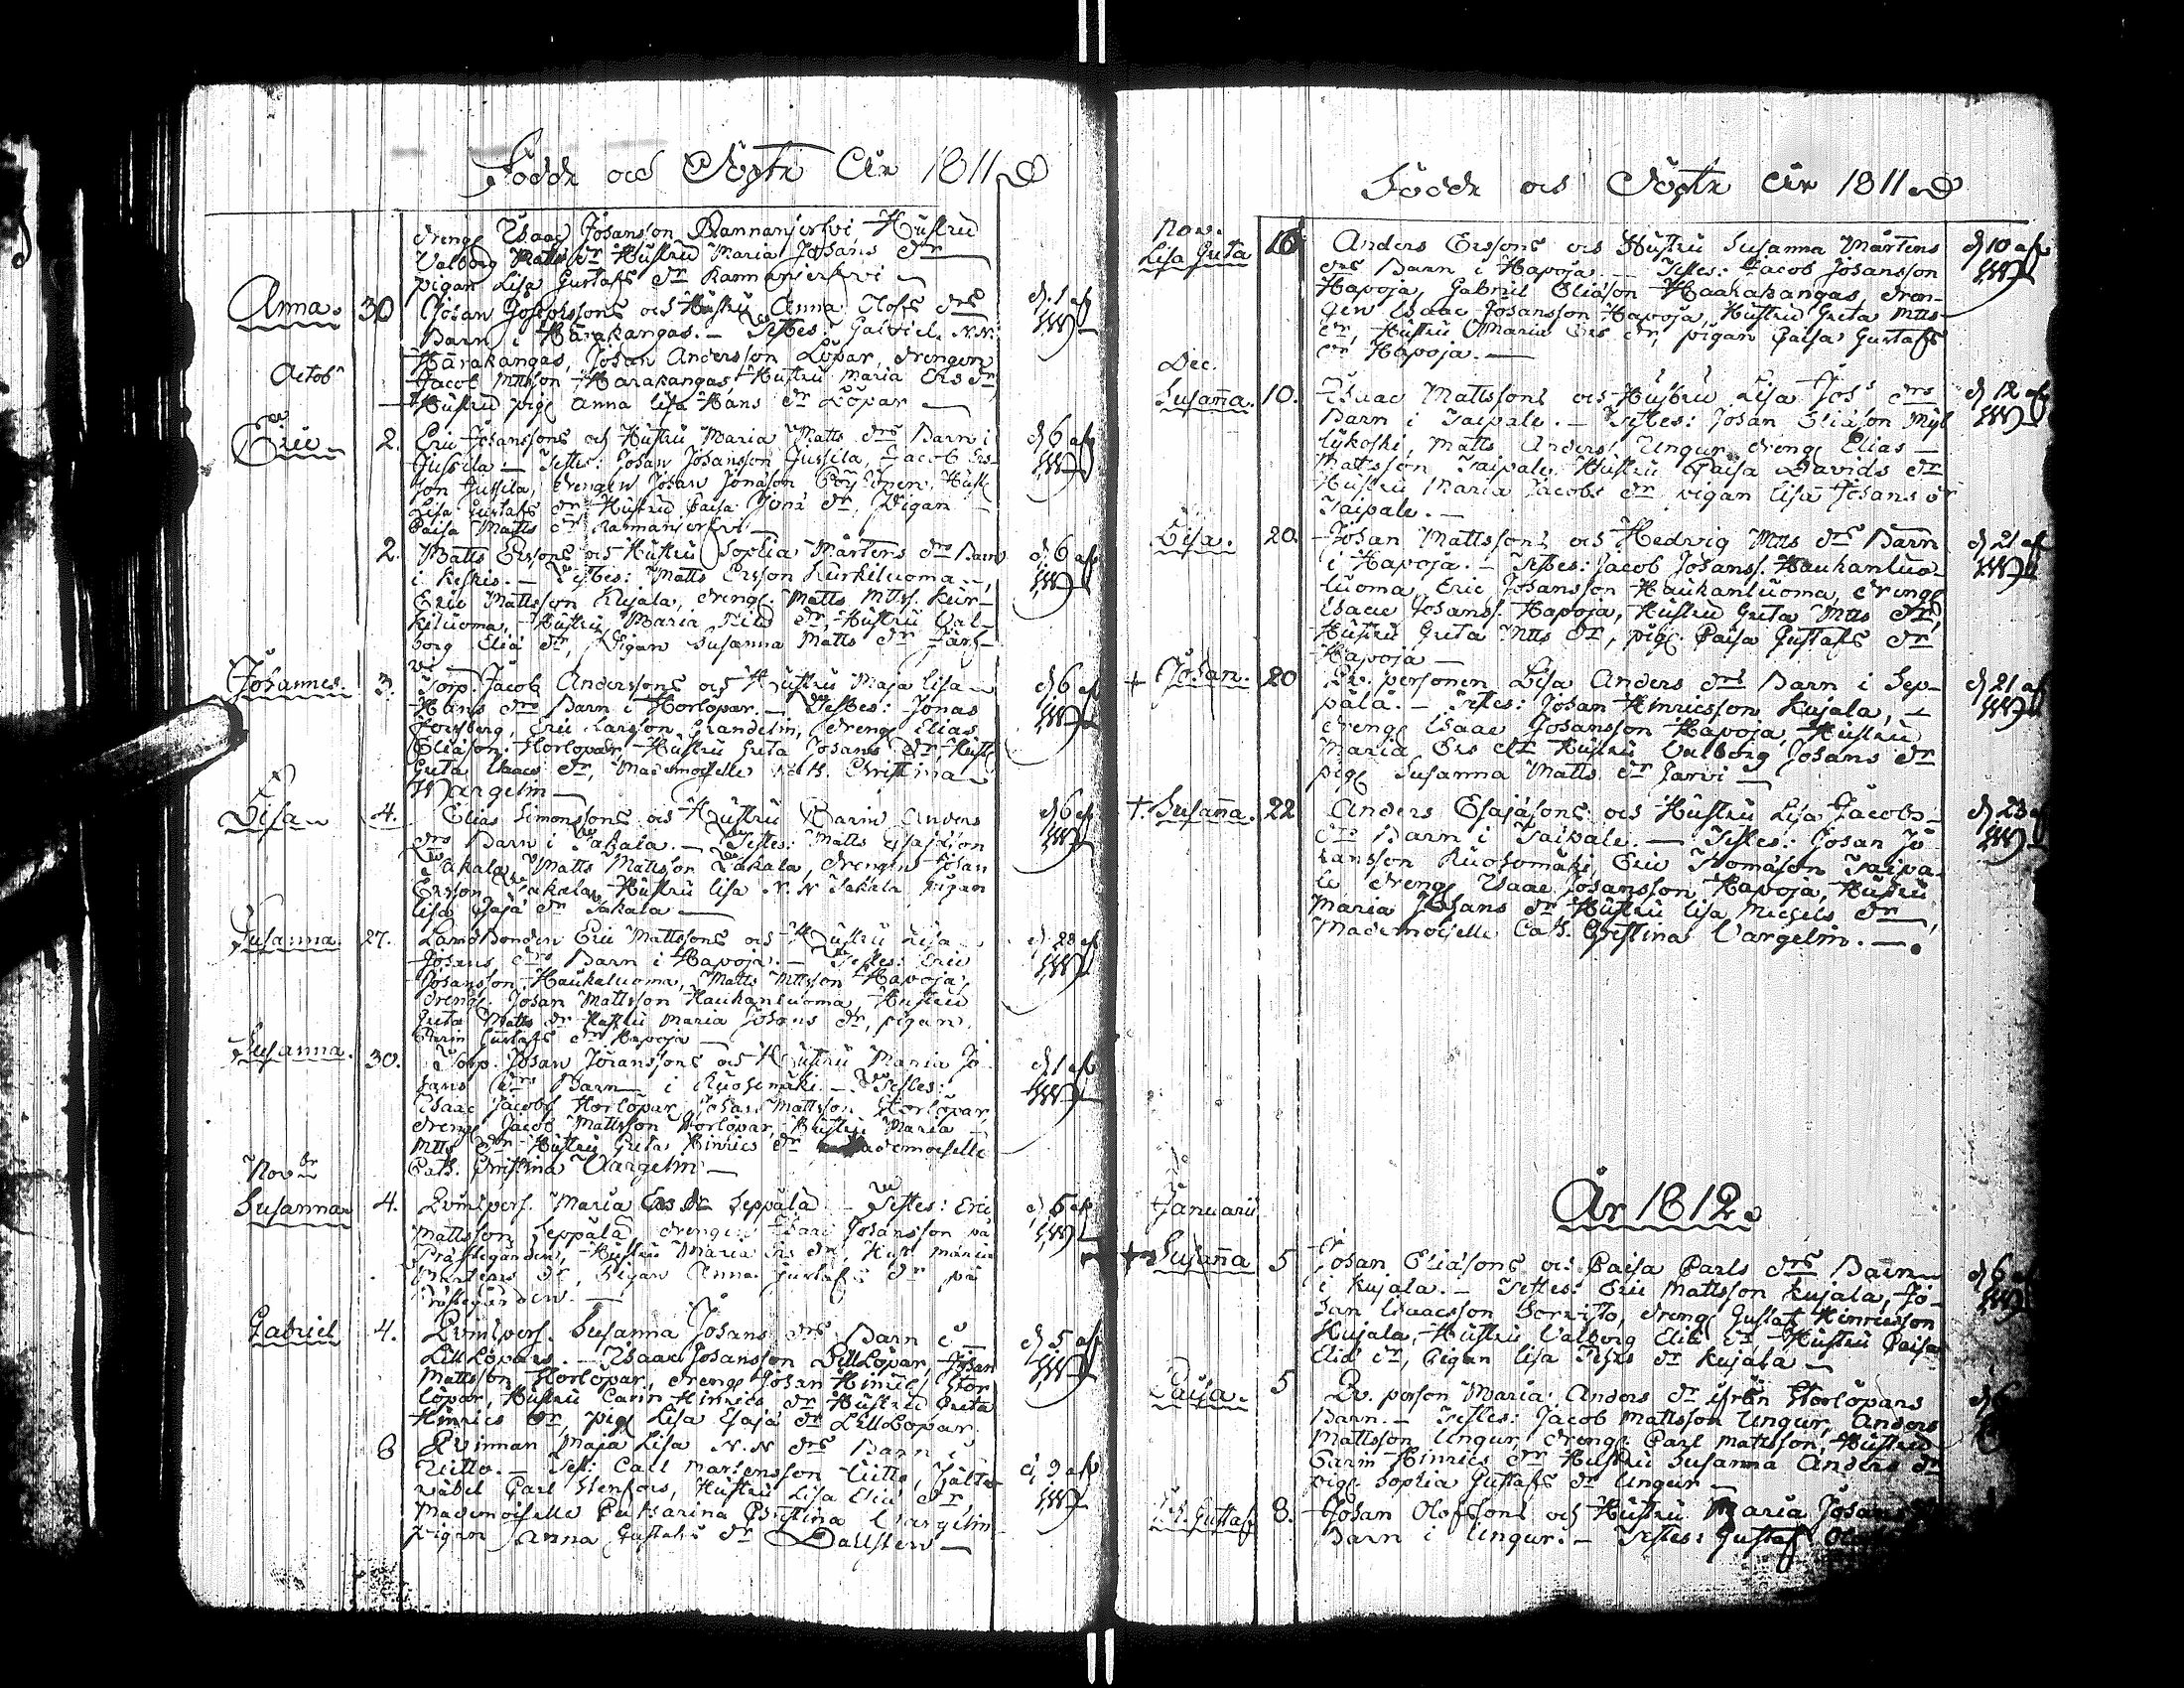 Födde och Döpte År 1811
dreng Isaac Johansson Rannanjerfvi Hustru
Valborg Matts dr Hustru Maria Johans dr
pigan Lisa Gustafs dr Rannanjerfvi
Anna. 30 Johan Josephssons och Hustru Anna Olofs drs d. 1 af
Barn i Harakangas. - Testes: Gabriel N.N.
Harakangas, Johan Andersson Löpar, drengen
Octobr Jacob Mttsson Harakangas Hustru Maria Ers dr,
Hustru pig Anna Lisa Hans dr Löpar
Eric 2. Eric Johanssons och Hustru Maria Matts drs Barn i d. 6 af
Jussila. - Testes: Johan Johansson Jussila, Jacob Ers-
son Jussila, drengen Johan Jonason Hust
Lisa Gustafs dr Hustru Caisa Jona dr, Pigan
Caisa Matts dr Rannanjerfvi
2. Matts Erssons och Hustru Sophia Mårtens drs Barn d. 6 af
i Keskis. - Testes: Matts Ersson Kurkiluoma,
Eric Mattsson Kujala, dreng. Matts Mttss. Kur-
kiluoma, Hustru Maria dr, Hustru Val-
borg Elia dr, Pigan Susanna Matts dr Järf-
vi
Johannes 3. Torp. Jacob Anderssons och Hustru Maja Lisa d. 6 af
Hans drs Barn i Storlöpar. - Testes: Jonas
Forsberg, Eric Larsson Grandelin, dreng Elias
Eliason Storlöpar, Hustru Greta Johans dr, Hust
Greta Isaacs dr, Mademoiselle Cath. Christina
Wargelin
Lisa 4. Elias Simonssons och Hustru Carin Anders d. 6 af
drs Barn i Takala. - Testes: Matts Esajason
Takala, Matts Mattsson Takala, drengen Johan
Ersson Takala, Hustru Lisa N.N Takala pigan
Lisa Esajä dr Takala
Susanna 27. Landbonden Eric Mattssons och Hustru Lisa d. 28 af
Johans drs Barn i Hapoja. - Testes: Eric
Johansson Haukaluoma, Matts Mttsson Hapoja,
dreng. Johan Mattsson Haukanluoma, Hustru
Greta Matts dr Hustru Maria Johans dr, pigan
Carin Gustafs dr Hapoja
Susanna. 30. Torp. Johan Joranssons och Hustru Maria Jo- d. 1 af
hans drs Barn i Ruohomäki. - Testes:
Isaac Jacobs Storlöpar, Johan Mattsson Storlöpar,
dreng Jacob Mattsson Storlöpar, Hustru Maria
Mtts dr Hustru Greta Hinrics dr Mademoiselle
Novbr Cath. Christina Vargelin
Susanna 4. Qvinlpers. Maria Ers dr Seppälä - Testes: Eric d. 5 af
Mattsson Seppälä drengen Isaac Johansson på
Prästegården, Hustru Maria Ers dr, Hust Maria
Mårtens dr, Pigan Anna Gustafs dr på
Prästegården
Gabriel 4. Qvinlpers. Susanna Johans drs Barn i d. 5 af
Lill Löpars. - Isaac Johansson Lill Löpar, Johan
Mattsson Storlöpar, dreng Johan Hinrics Stor
löpar, Hustru Carin Hinrics dr Hustru Greta
Hinrics dr, pig Lisa Esajä dr Lill Löpar.
8 Qvinnan Maja Lisa N.N drs Barn i d. 9 af
Uitto. - Test: Carl Mårtensson Uitto, Fält-
väbel Carl Stenfors, Hustru Lisa Elia dr,
Mademoiselle Catharina Christina Wargelin
pigan Anna Gustafs dr Dallsten
Födde och Döpte År 1811
Nov.
Lisa Greta 16 Anders Erssons och Hustru Susanna Mårtens d. 10 af
drs Barn i Hapoja. - Testes: Jacob Johansson
Hapoja, Gabriel Eliason Haarahangas, dren-
gen Isaac Johansson Hapoja, Hustru Greta Mtts
dr, Hustru Maria Ers dr, pigan Caisa Gustafs
Dec. dr Hapoja.
Susanna. 10. Isaac Mattssons och Hustru Lisa Johs drs d. 12 af
Barn i Taipale. - Testes: Johan Eliason Myl
lykoski, Matts Anders Ungur, dreng Elias
Mattsson Taipale, Hustru Caisa Davids dr
Hustru Maria Jacobs dr pigan Lisa Johans dr
Taipale.
Lisa. 20. Johan Mattssons och Hedvig Mtts drs Barn d. 21 af
i Hapoja. - Testes: Jacob Johanss. Haukanluo-
luoma, Eric Johansson Haukanluoma, drenge
Isaac Johanss Hapoja, Hustru Greta Mtts dr,
Hustru Greta Mtts dr, pig. Caisa Gustafs dr
Hapoja
+ Johan. 20 Qv. personen Lisa Anders drs Barn i Sep- d. 21 af
pälä. - Testes: Johan Hinricsson Kujala,
dreng Isaac Johansson Hapoja, Hustru
Maria Ers dr Hustru Valborg Johans dr
pig Susanna Matts dr Jarvi
+ Susanna. 22 Anders Esajäsons och Hustru Lisa Jacobs- d. 23 af
drs Barn i Taipale. - Testes: Johan Jo
hansson Ruohomäki, Eric Thomason Taipa-
le dreng Isaac Johansson Hapoja, Hustru
Maria Johans dr Hustru Lisa Michels dr
Mademoiselle Cath. Christina Vargelin.
År 1812.
Januarii
+ Susanna 5 Johan Eliasons och Caisa Carls drs Barn d. 6 af
i Kujala. - Testes: Eric Mattsson Kujala, Jo-
han Isaacsson Sorvitto, dreng Gustaf Hinricsson
Kujala, Hustru Valborg Elia dr Hustru Caisa
Elia dr, Pigan Lisa dr Kujala
Caisa. 5 Qv. person Maria Anders dr ifrån Storlöpars d. 6
Barn. - Testes: Jacob Mattsson Ungur, Anders
Mattsson Ungur, dreng. Carl Mattsson, Hustru
Carin Hinrics dr Hustru Susanna Anders dr
pig. Sophia Gustafs dr Ungur
Gustaf 8. Johan Olofssons och Hustru Maria Johans
Barn i Ungur. - Testes: Gustaf